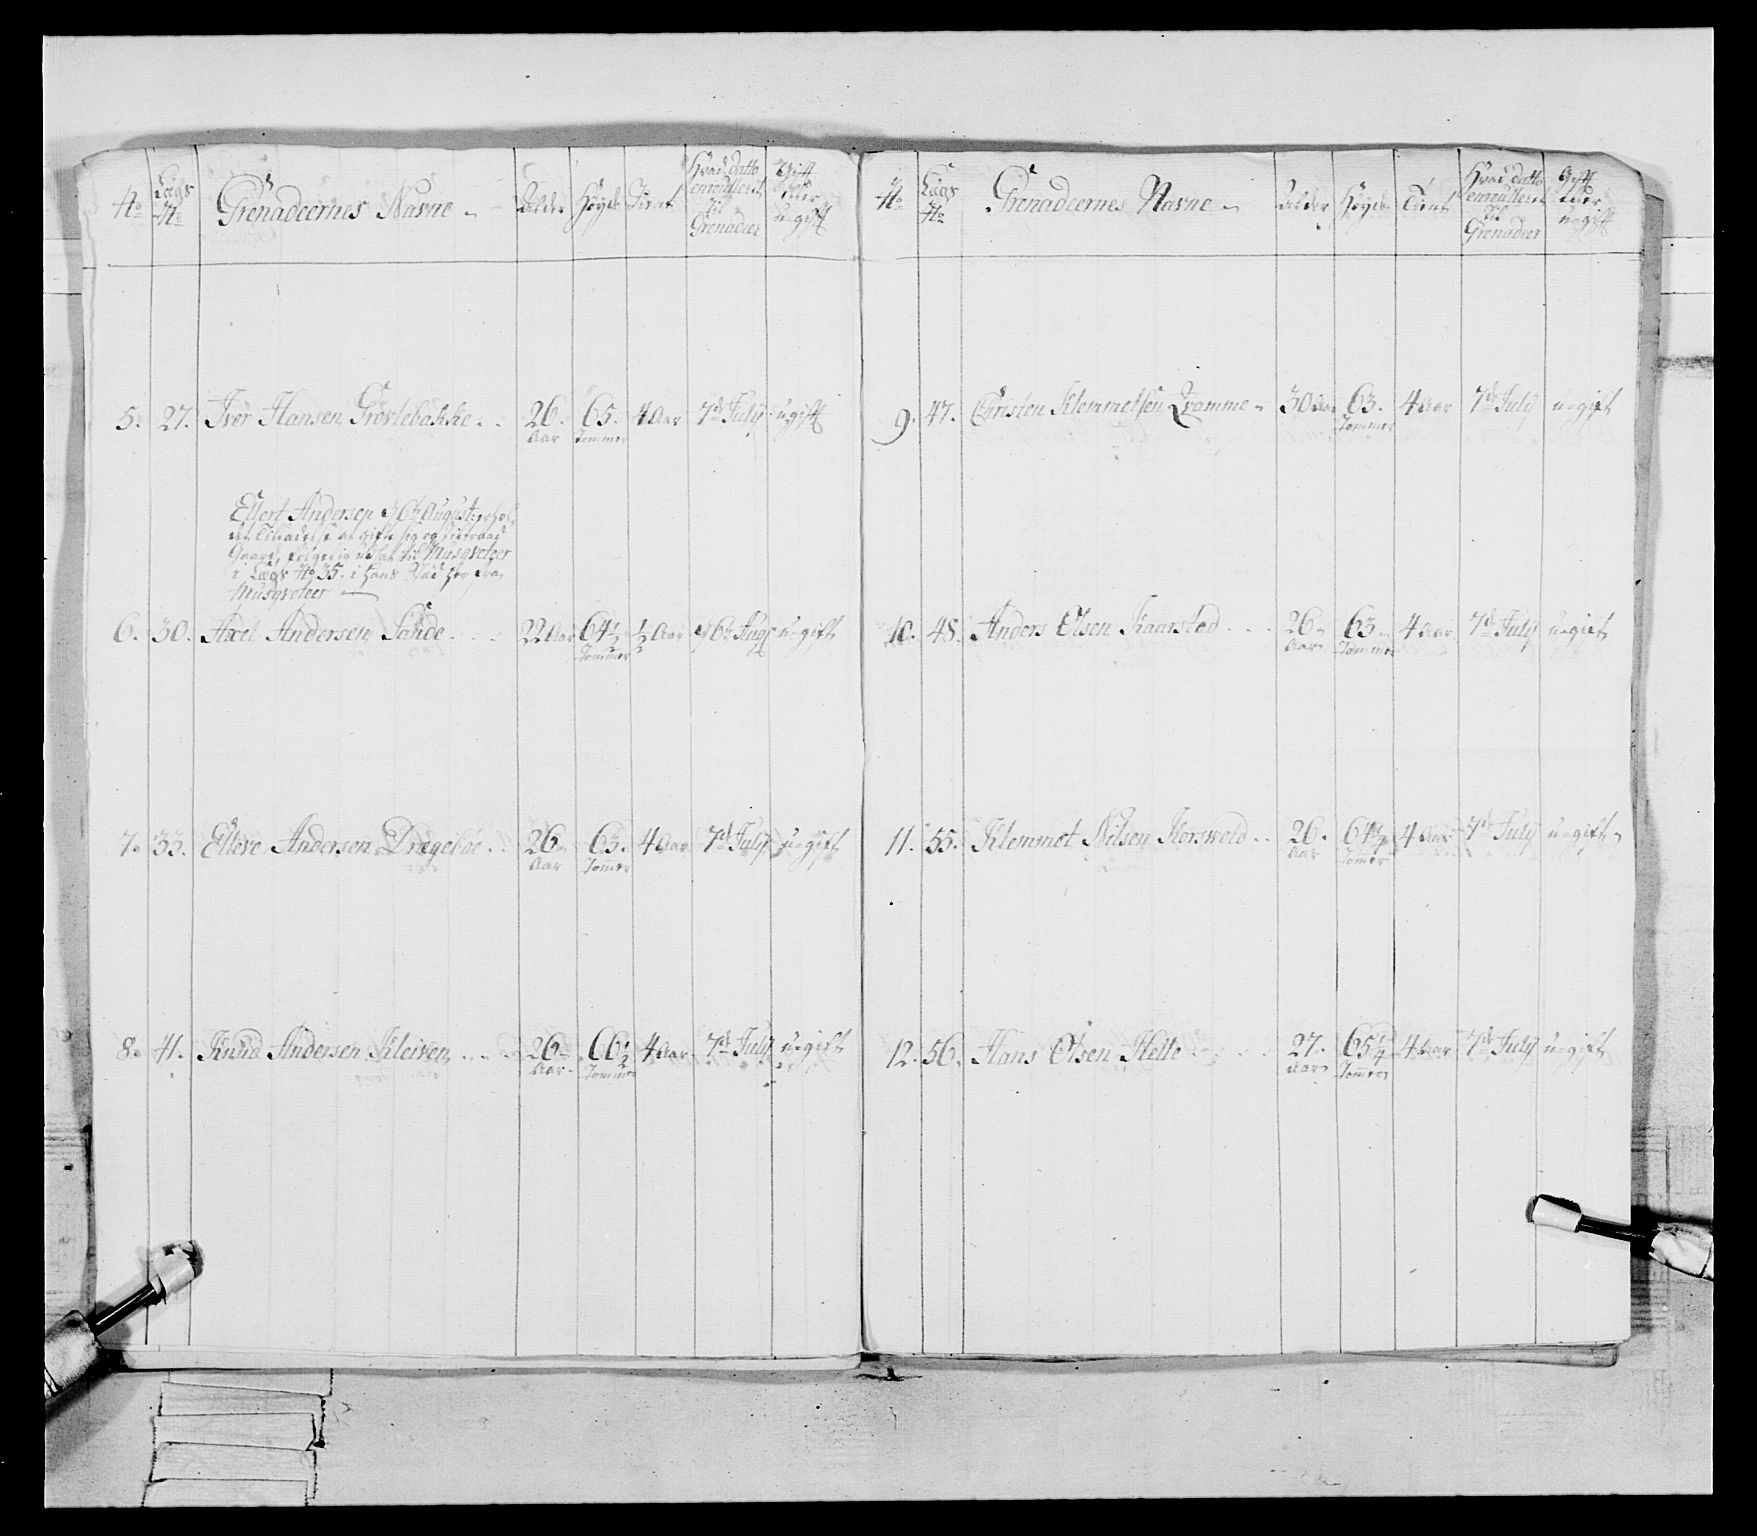 No Lægs No Grenadeernes Navne Alder Høyde Tient Hvad datto enroulleret til Grenadeer Gift eller ugift
5. 27. Iver Hansen Grøvlebakke 26 Aar 65 Tommer 4 Aar 7de July ugift
Ellert Andersen 16de August
Tilladelse at gifte sig og
Gaard, følgelig udsat til Musqveteer
i Lægs No 35. i hans Stæd her fra
Musqveteer
6. 30. Axel Andersen Sande 22 Aar 64½ Tommer ½ Aar 16de Aug ugift
7. 33. Elleve Andersen Dragebøe 26 Aar 63. Tommer 4 Aar 7de July ugift
8. 41. Knud Andersen Kleiven 26 Aar 66½ Tommer 4 Aar 7de July ugift
No Lægs No Grenadeernes Navne Alder Høyde Tient Hvad datto enroulleret til Grenadeer Gift eller ugift
9. 47. Christen Klemmetsen Tramme 30 Aar 63. Tommer 4 Aar 7de July ugift
10. 48. Anders Olsen Kaarstad 26 Aar 63 Tommer 4 Aar 7de July ugift
11. 55. Klemmet Nilsen Korswold 26. Aar 64½ Tommer 4 Aar 7de July ugift
12. 56. Hans Olsen Helte 27. Aar 65¼ Tommer 4 Aar 7de July ugift